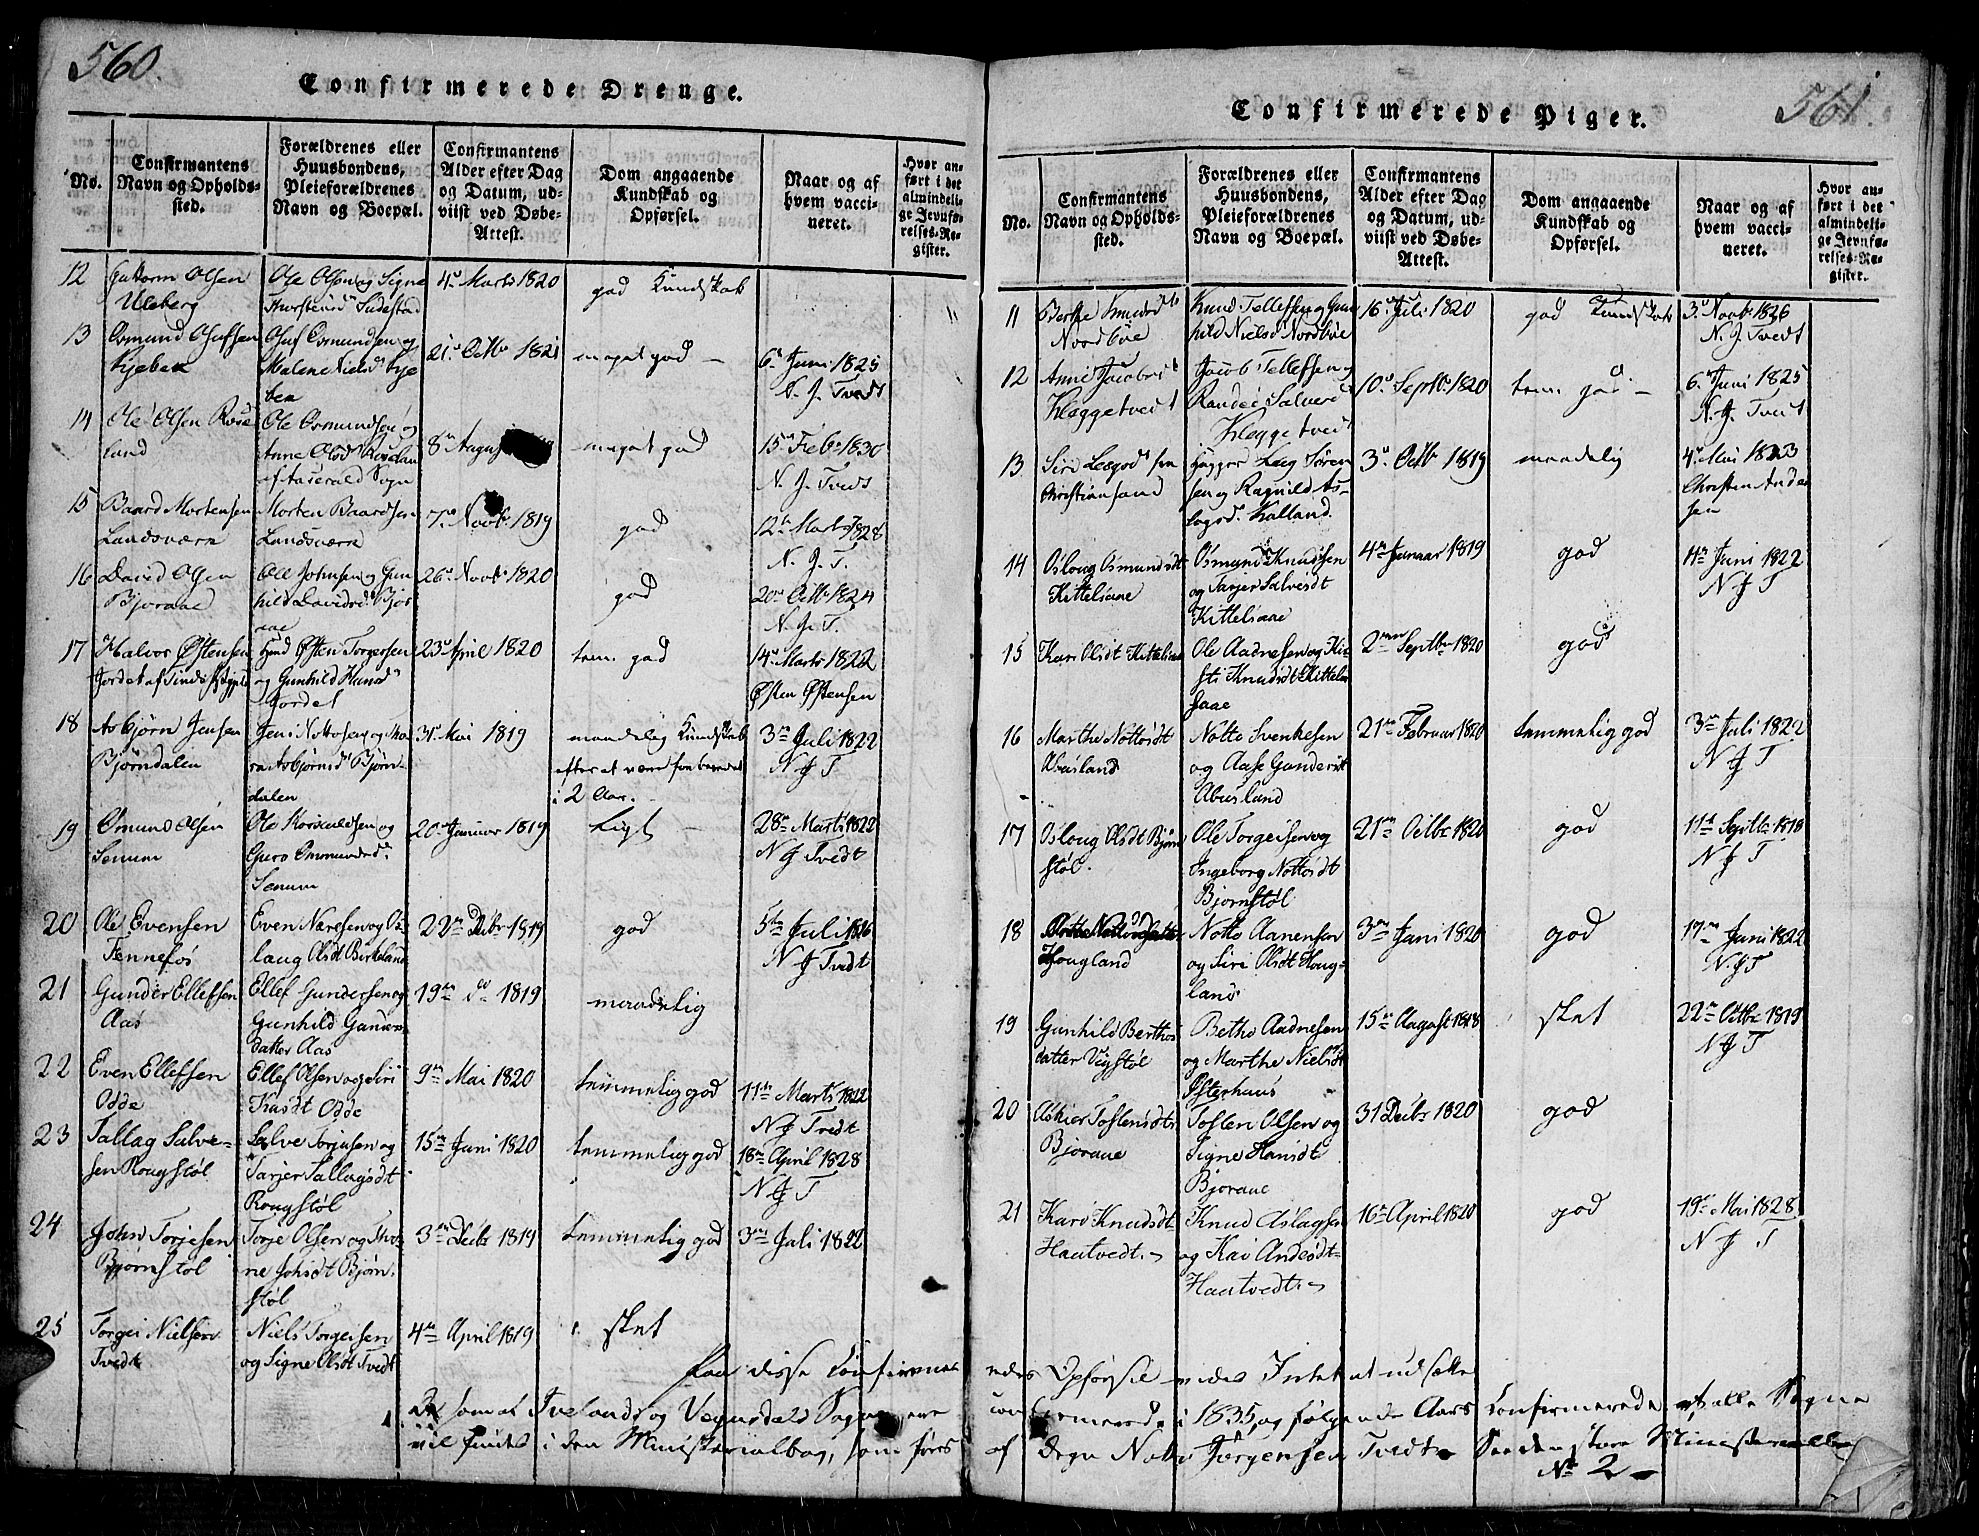 560.
Confirmerede Drenge.
No.
Confirmantens
Navn og Opholds-
sted.
Forældrenes eller
Huusbondens,
Pleieforældrenes
Navn og Boepæl.
Confirmantens
Alder efter Dag
og Datum, ud-
viist ved Døbe-
Attest.
Dom angaaende
Kundskab og
Opførsel.
Naar og af
hvem vacci-
neret.
Hvor an-
ført i det
almindeli-
ge Jevnfø-
relses-Re-
gister.
12
Guttorm Olsen
Uleberg
Ole Olsen og Signe
4de Marts 1820
god Kundskab
13
Osmund Olufsen
Oluf Osmundsen og
Malene Nielsd
21de Octbr 1821
meget god –
6te Juni 1825
N. J. Tvedt
14
Ole Olsen Rose
land
Ole Osmundsen og
Anne Olsd Roselan
af Aaserald Sogn
8de August
meget god
15de Febr 1830
N. J. Tveds
15
Baard Mortensen
Landsværk
Morten Baardsen
Landsværk
7de Novbr 1819
god
12te Marts 1828
N. J. T.
16
David Olsen
Bjoraae
Ole Johnsen og Gun
hild Davidsd. Bjor
aae
26de Novbr 1820
god
20de Octbr 1824
N. J. T.
17
Halvor Østensen
Jordet af Tinds
Østen Torgersen
og Gunhild Hansd
Jordet
23de April 1820
tem. god
14de Marts 1822
Østen Østensen
18
Asbjørn Jensen
Bjørndalen
Jens Nottosen og Ma
ra Asbjørnsd Bjørn-
dalen
31te Mai 1819
maadelig Kundskab
efter at være forberedet
i 2 Aar.
3de Juli 1822
N J T
19
Omund Olsen
Senum
Ole
Guro Ommundsd.
Senum
20de Januar 1819
Ligt –
28de Marts 1822
N J Tvedt
20
Ole Evensen
Fennefos
Even Næresen og Os-
laug Olsdt Birkeland
22de Decbr 1819
god
5te Juli 1816
N J Tvedt
21
Gunder Ellefsen
Aas
Ellef Gundersen og
Gunhild Gunders
datter Aas
19de do 1819
maadelig
22
Even Ellefsen
Odde
Ellef Olsen og Siri
Knsdt Odde
9de Mai 1820
temmelig god
11te Marts 1822
N J Tvedt
23
Tallag Salve-
sen Rougstøl
Salve Torjusen og
Tarjer Tallagsdt
Rougstøl
15de Juni 1820
temmelig god
18de April 1828
N J T
24
John Torjesen
Bjørnstøl
Torje Olsen og Tho-
ne Johsdt Bjørn-
støl
3de Decbr 1819
temmelig god
3de Juli 1822
25
Torgei Nielsen
Tvedt
Niels Torgeisen
og Signe Olsdt Tvedt
4de April 1819
slet
561.
Confirmerede Piger.
No.
Confirmantens
Navn og Opholds-
sted.
Forældrenes eller
Huusbondens,
Pleieforældrenes
Navn og Boepæl.
Confirmantens
Alder efter Dag
og Datum, ud-
viist ved Døbe-
Attest.
Dom angaaende
Kundskab og
Opførsel.
Naar og af
hvem vacci-
neret.
Hvor an-
ført i det
almindeli-
ge Jevnfø-
relses-Re-
gister.
11
Berthe Knudsdt
Nordbøe
Knud Tellefsen og Gun
hild Nielsd Nordbøe
16de Juli 1820
god Kundskab
3de Novbr 1826
N. J. Tvedt
12
Anne Jacobsdt
Kleggetvedt
Jacob Tellefsen og
Randei Salvesd
Kleggetvedt
10de Septbr 1820
tem. god –
6te Juni 1825
N. J. Tvedt
13
Siri Leegsdt fra
Christiansand
Leeg Søren
sen og Ragnild As-
lagsd. Kalland.
3de Octbr 1819
maadelig
4de Mai 1823
Christen Ander
sen
14
Osloug Osmundsdt
Kittelsaae
Osmund Knudsen
og Tarjer Salvesdt
Kittelsaae
4de Januar 1819
god
4de Juni 1822
N J T
15
Kari Olsdt Kittelsaae
Ole Aadnesen og Ki-
sti Knudsdt Kittel
saae
2den Septbr 1820
god
16
Marthe Nottosdt
Abusland
Notto Svenkesen
og Aase Gundersdt
Abusland
21de Februar 1820
temmelig god
3de Juli 1822
N J T
17
Osloug Olsdt Bjørn
støl.
Ole Torgeisen og
Ingeborg Nottosdt
Bjørnstøl
21de Octbr 1820
god
11te Septbr 1818
N J T
18
Hougland
Notto Aanensen
og Siri Olsdt Houg-
land
3de Juni 1820
god
17de Juni 1822
N. J T
19
Gunhild Berthos
datter Vegstøl
Betho Aadnesen
og Marthe Nielsdt
Østerhuus
15de August 1818
slet
22de Octbr 1819
N J T
20
Askier Tostensdt
Bjoraae
Tosten Olsen og
Signe Hansdt
Bjoraae
31 Decbr 1820
god
21
Kari Knudsdt
Haatvedt.
Knud Aslagsen
og Kari Andesdt
Haatvedt
16de April 1820
god
19de Mai 1828
N J T
Paa disse Confirme-
redes Opførsel vides Intet at udsætte
De som af Tvelands og Vegusdals Sogne ere
confirmerede i 1835, og følgende Aars Confirmerede af alle Sogne
vil findes i den Ministerialbog, som føres
af Degn Notto Jørgensen Tvedt.
No 2